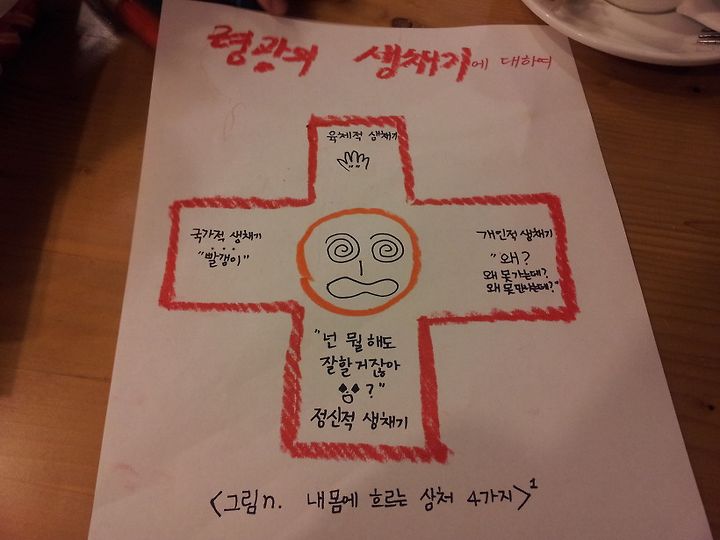 령광의 생채기에 대하여
육체적 생채기
국가적 생채기
"빨갱이"
개인적 생채기
"왜?
왜 못가는데?
왜 못만나는데?"
"넌 뭘 해도
잘할거잖아
?"
정신적 생채기
<그림n. 내몸에 흐르는 상처 4가지>1